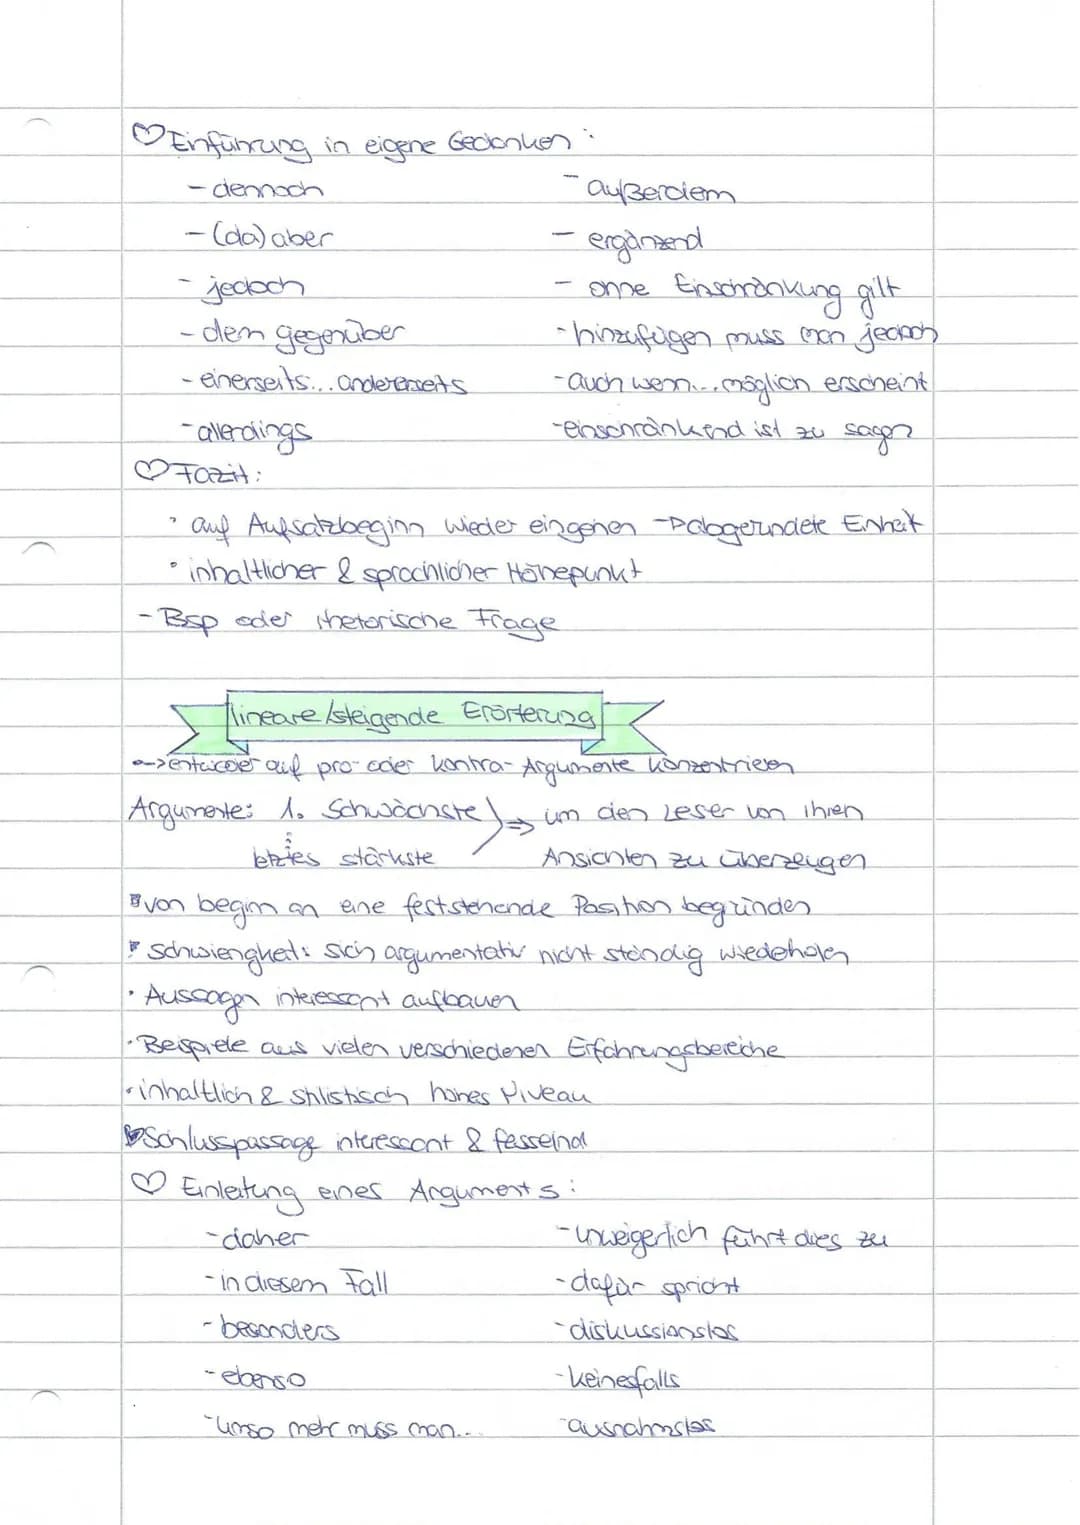 ♡ Einführung in eigene Gedanken:
- dennoch - außerdem
- (da) aber - ergänzend
- jedoch - ohne Einschränkung gilt
- dem gegenüber - hinzufügen muss man jedoch
- einerseits... andererseits - auch wenn... möglich erscheint
- allerdings - einschränkend ist zu sagen
♡ Fazit:
• auf Aufsatzbeginn wieder eingehen → abgerundete Einheit
• inhaltlicher & sprachlicher Höhepunkt
- Bsp oder rhetorische Frage
lineare/steigende Erörterung
→ entweder auf pro- oder kontra- Argumente konzentrieren
Argumente: 1. Schwächste ⇒ um den Leser von ihren
letztes stärkste Ansichten zu überzeugen
von beginn an eine feststehende Position begründen
Schwierigkeit: sich argumentativ nicht ständig wiederholen
• Aussagen interessant aufbauen
• Beispiele aus vielen verschiedenen Erfahrungsbereiche
• inhaltlich & stilistisch hohes Niveau
Schlusspassage interessant & fesselnd
♡ Einleitung eines Arguments:
- daher - unweigerlich führt dies zu
- in diesem Fall - dafür spricht
- besonders - diskussionslos
- ebenso - keinesfalls
- umso mehr muss man... - ausnahmslos